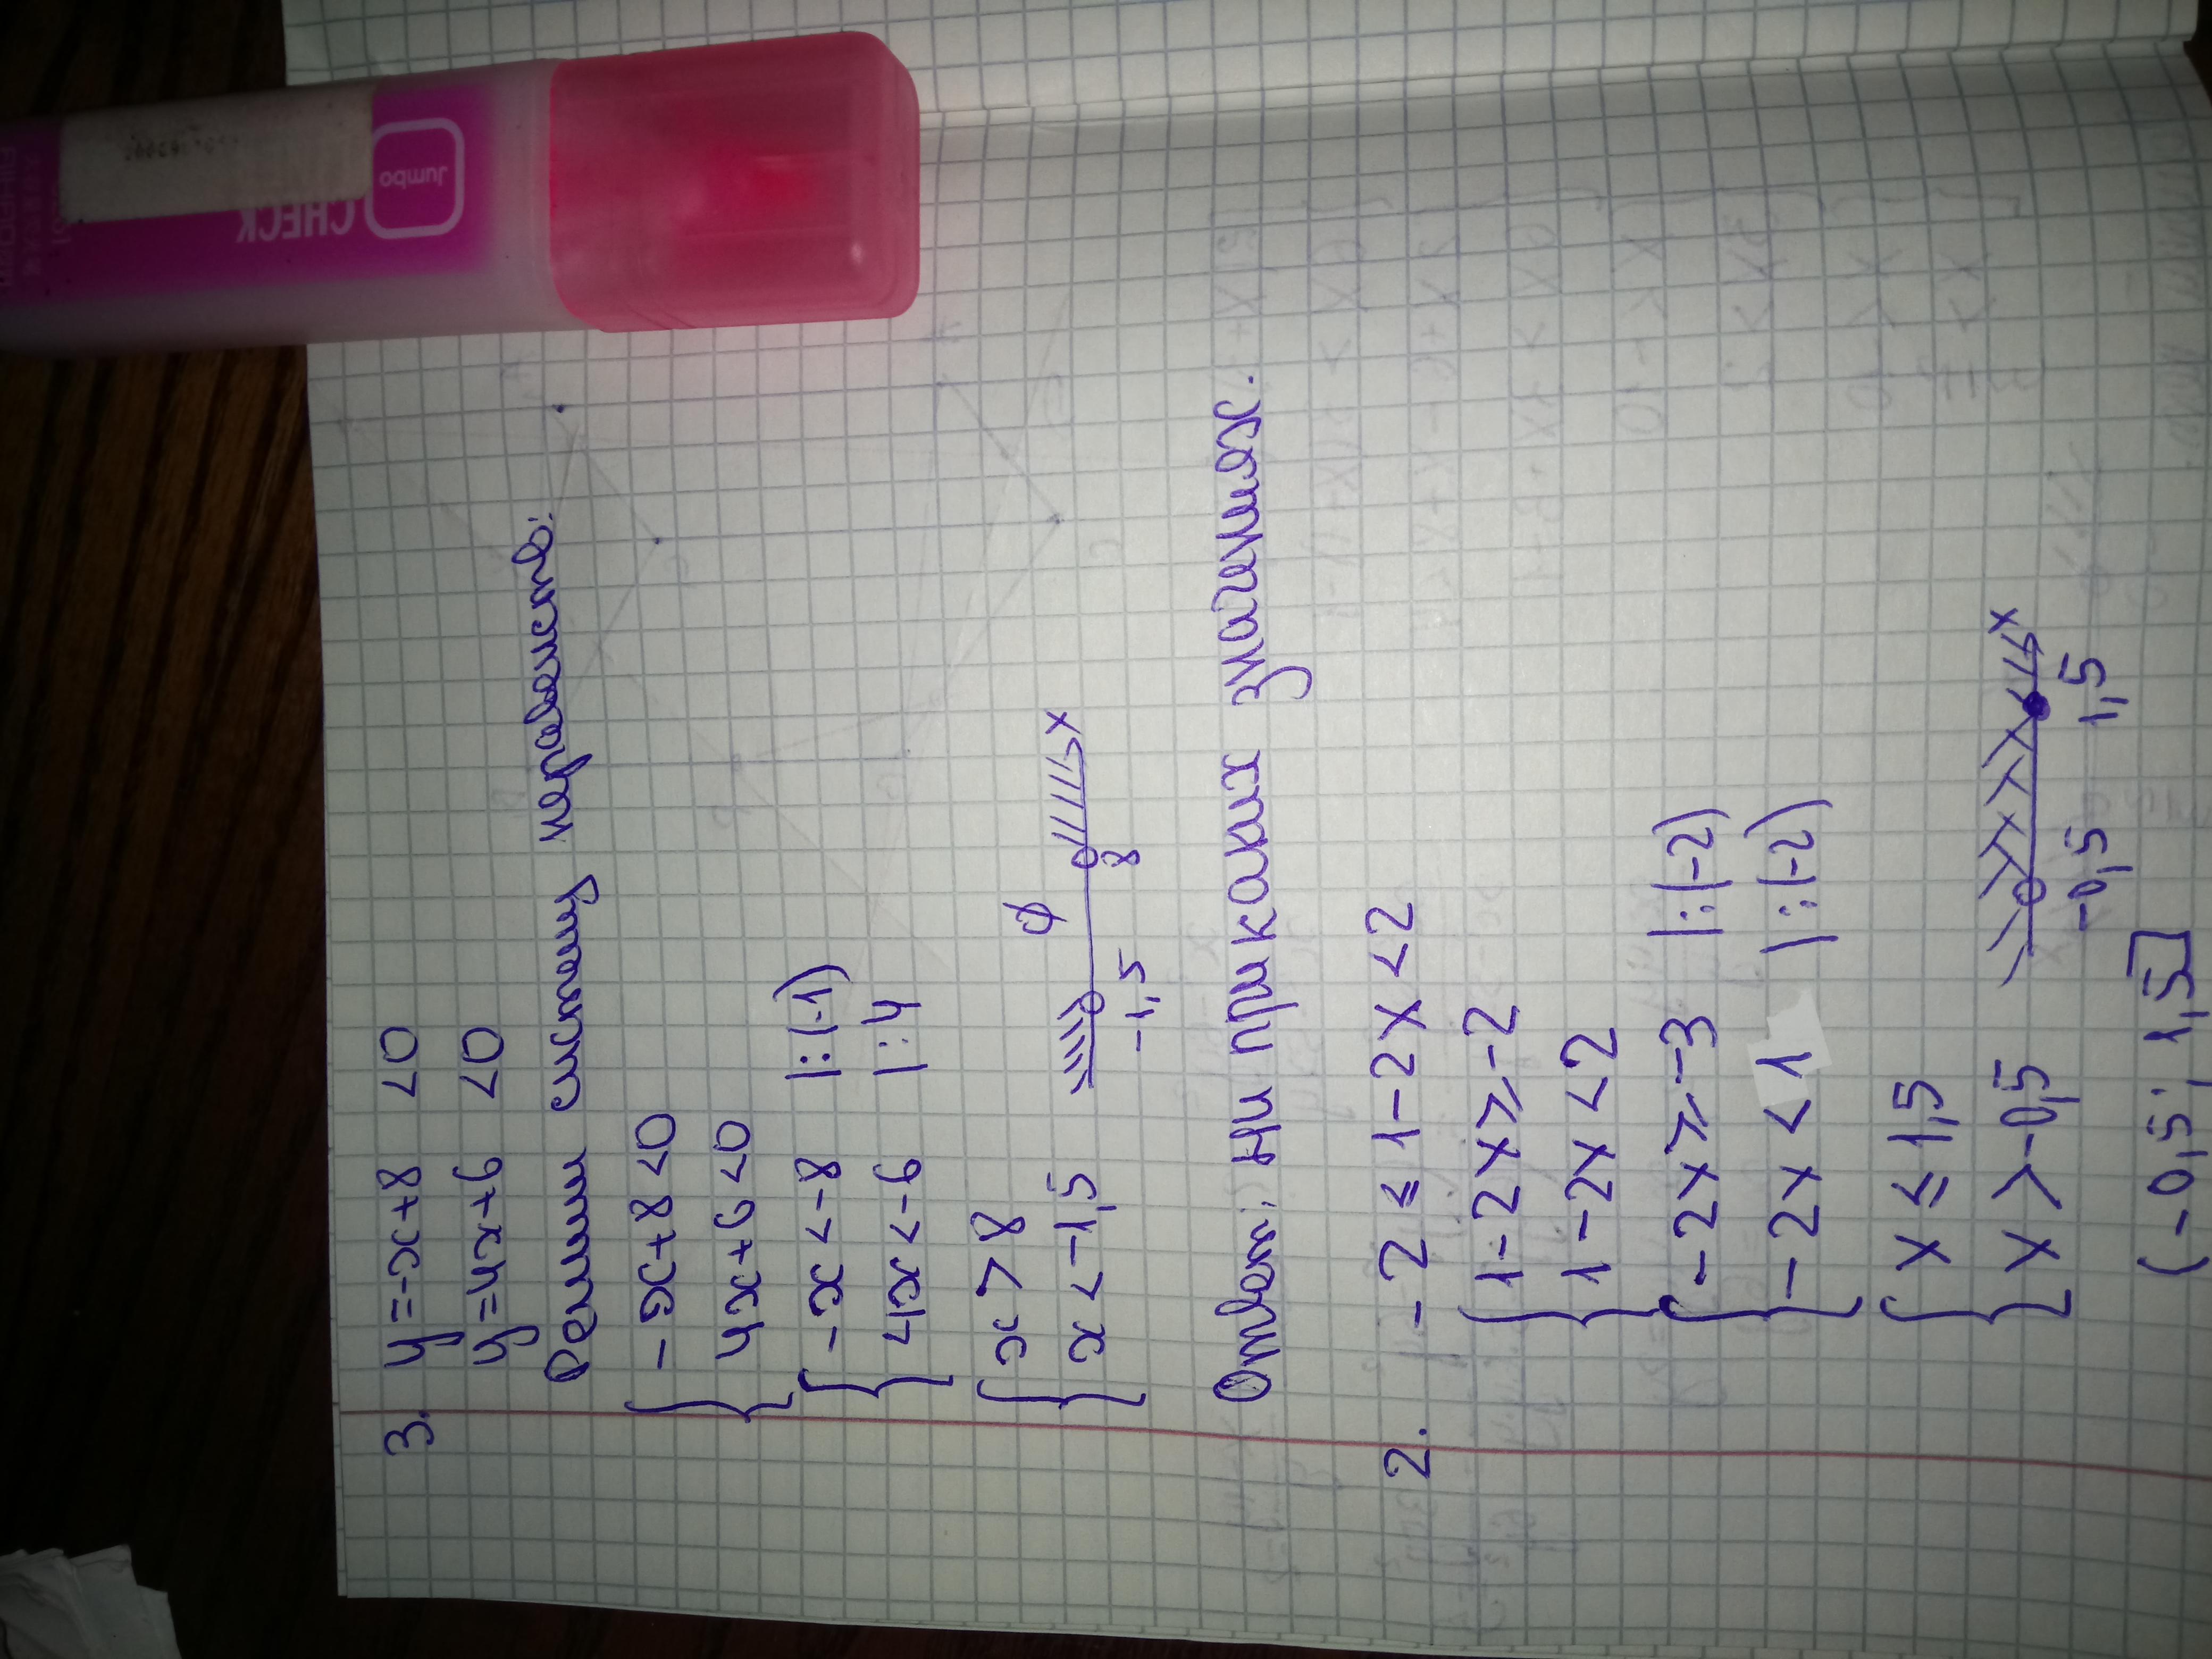 CHECK
Jumbo
3. y=-x+8 <0
y=4x+6 <0
Решим систему неравенств:
{ -x+8<0
4x+6<0
{ -x<-8 |:(-1)
4x<-6 |:4
{ x>8
x<-1,5
∅
-1,5 8 x
Ответ: ни при каких значениях.
2. -2≤1-2x<2
{ 1-2x≥-2
1-2x<2
{ -2x≥-3 |:(-2)
-2x<1 |:(-2)
{ x≤1,5
x>-0,5
-0,5 1,5 x
(-0,5; 1,5]